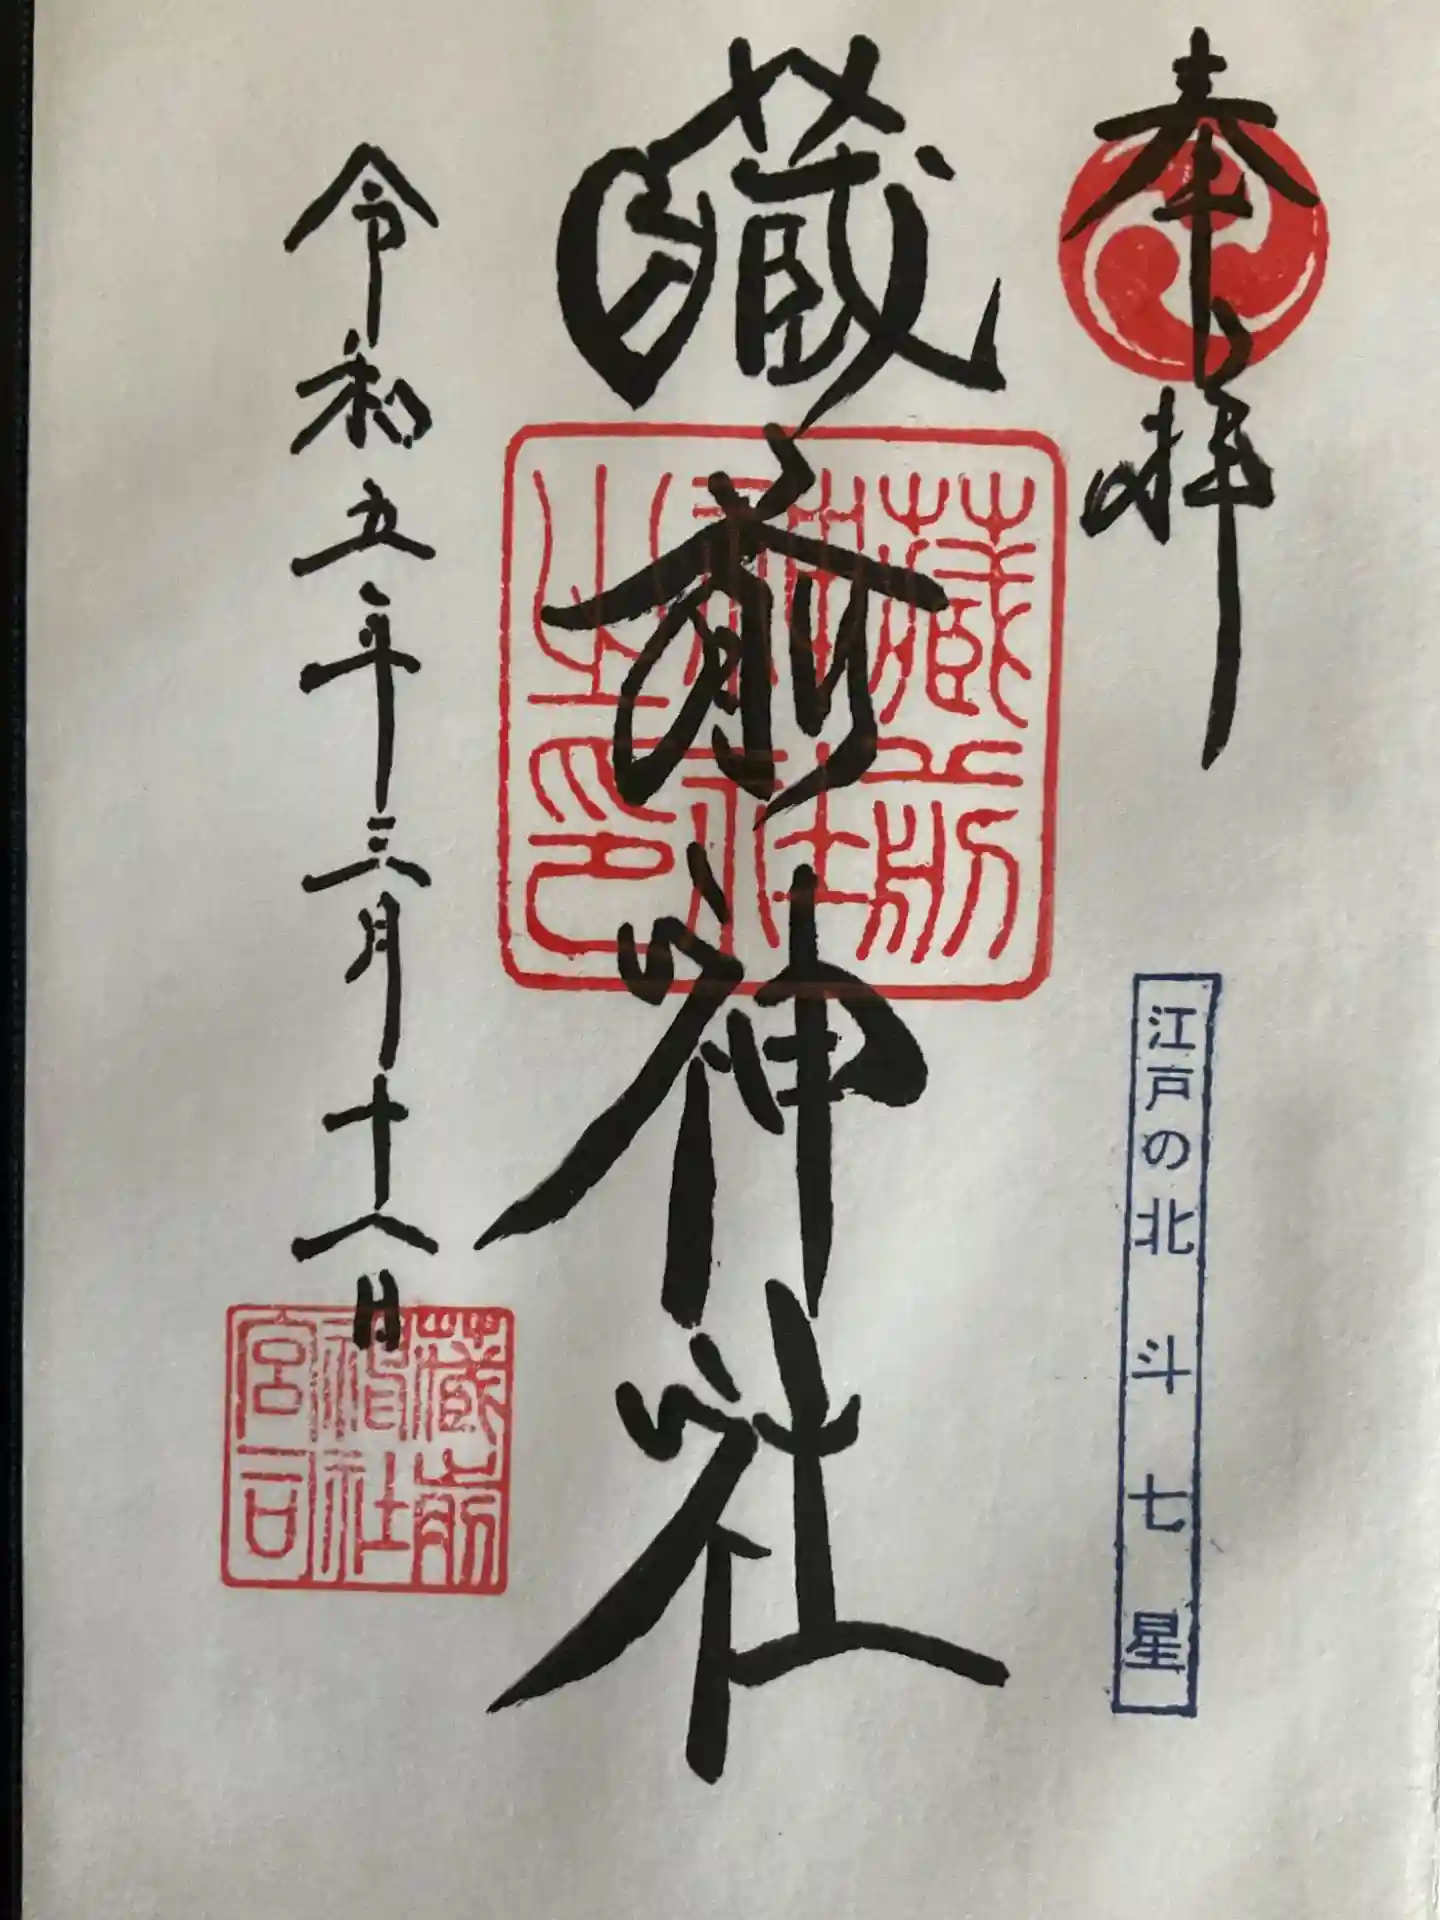 奉拝
江戸の北斗七星
蔵前神社
蔵前
神社
之印
令和五年三月十八日
蔵前
神社
宮司